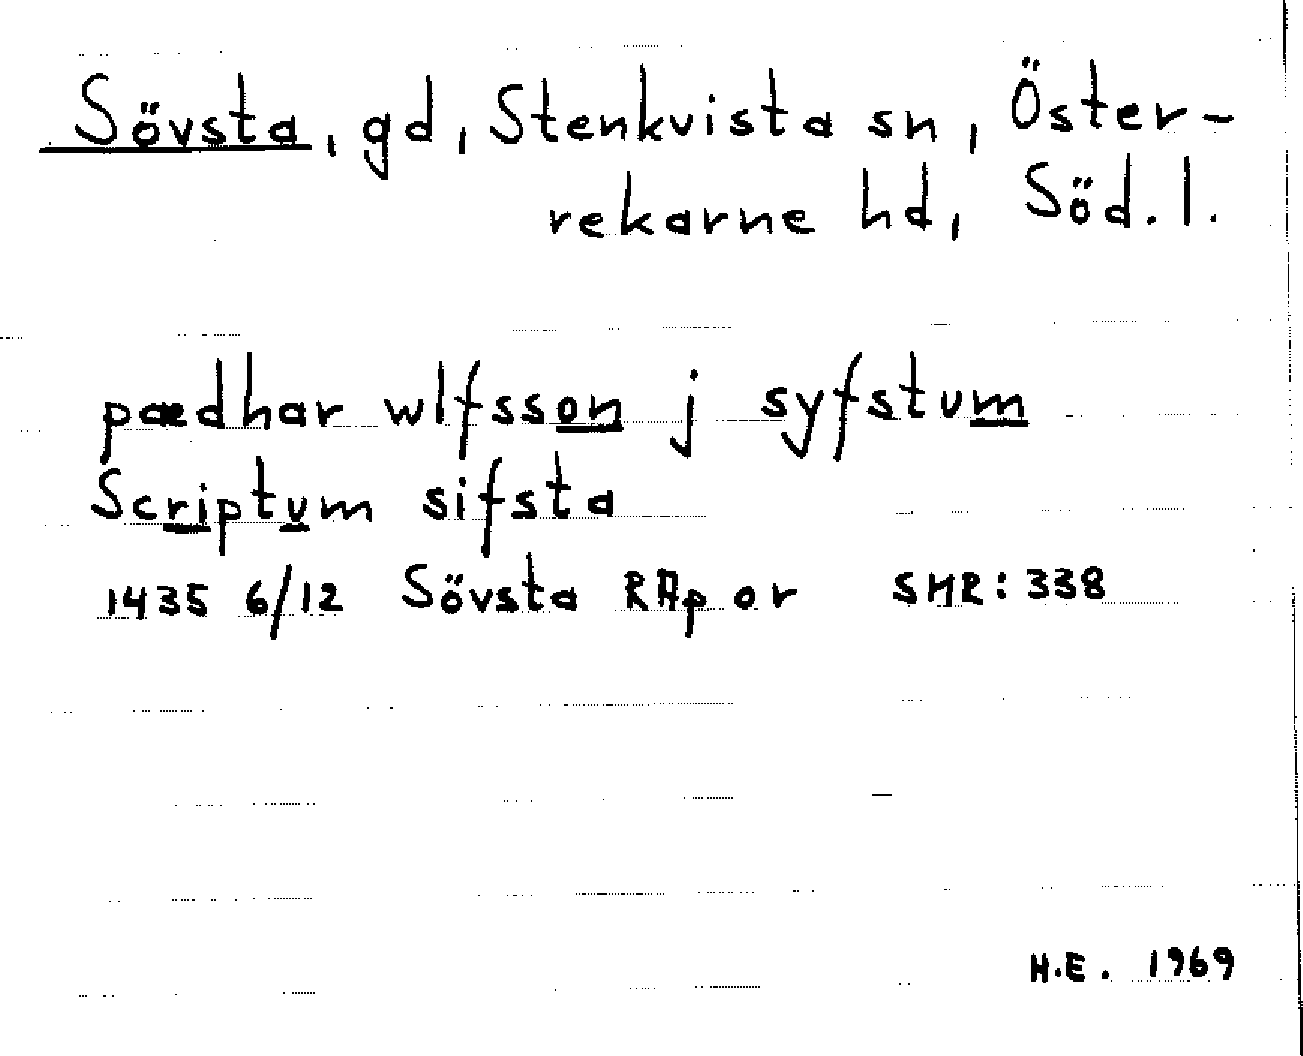 Sövsta, gd, Stenkvista sn, Öster-
rekarne hd, Söd.l.
pædhar wlfsson j syfstum
Scriptum sifsta
1435 6/12 Sövsta RAp or SMR:338
H.E. 1969